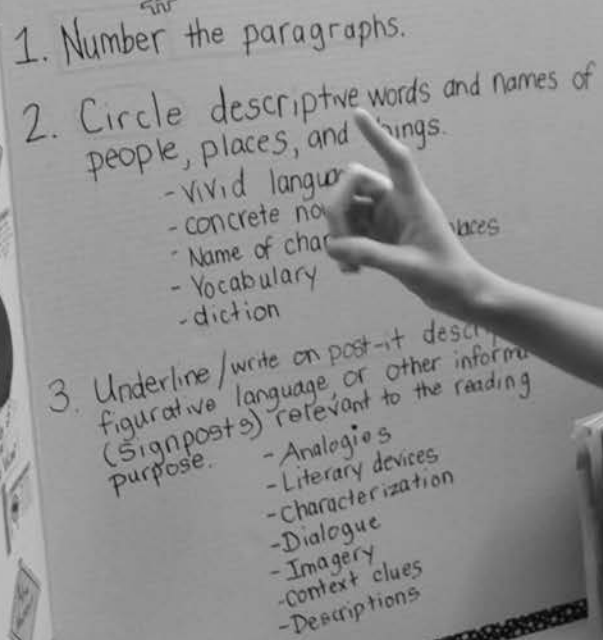 1. Number the paragraphs.
2. Circle descriptive words and names of
people, places, and things.
- vivid
- concrete
- Name of
- Vocabulary
- diction
3. Underline/write on post-it
figurative language, or other
(signposts) relevant to the reading
purpose.
- Analogies
- Literary devices
- Characterization
- Dialogue
- Imagery
- context clues
- Descriptions